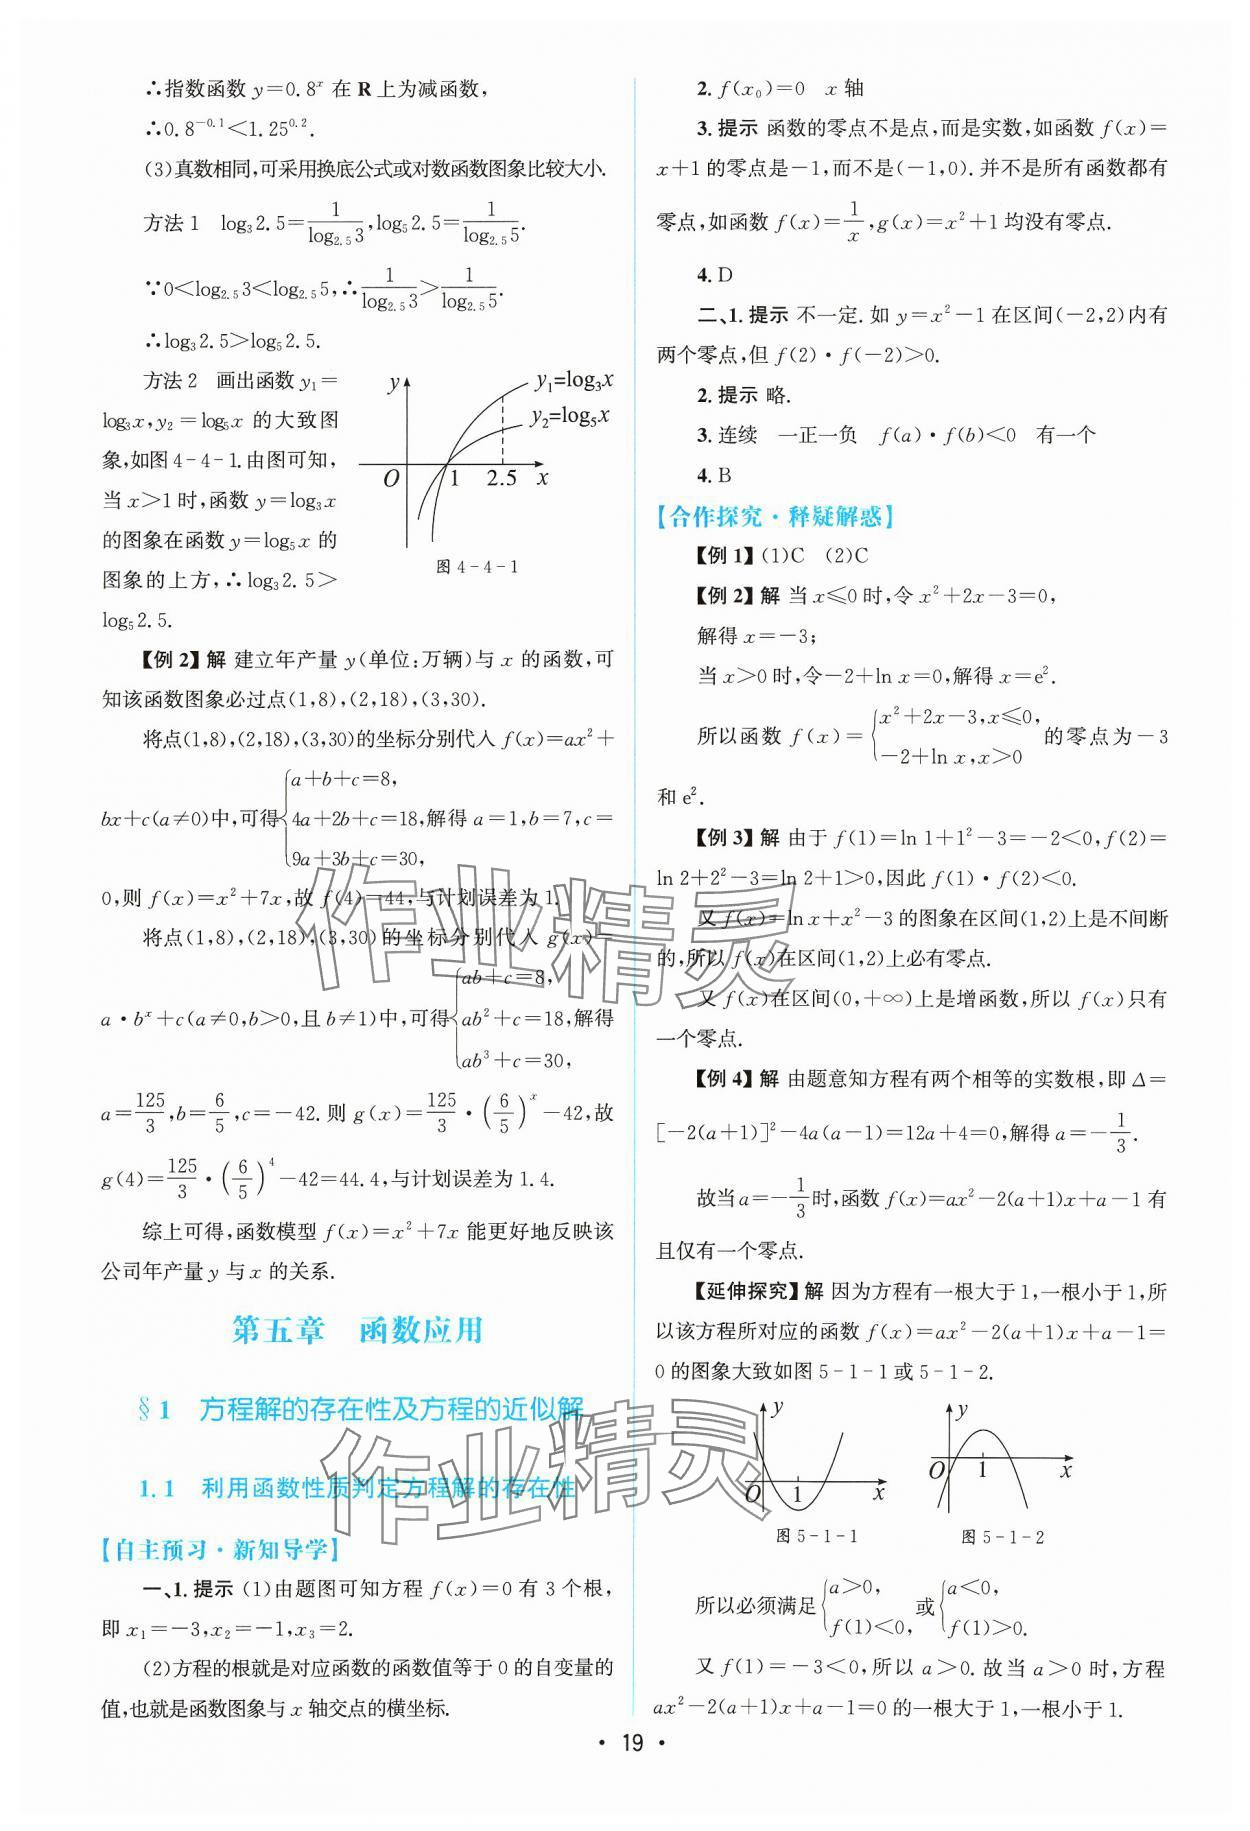 ∴指数函数 y=0.8ˣ 在 R 上为减函数,
∴0.8⁻⁰·¹<1.25⁰·².
(3)真数相同,可采用换底公式或对数函数图象比较大小.
方法1 log₃2.5=1/log₂.₅3,log₅2.5=1/log₂.₅5.
∵0<log₂.₅3<log₂.₅5,∴1/log₂.₅3>1/log₂.₅5.
∴log₃2.5>log₅2.5.
方法2 画出函数 y₁=
log₃x,y₂=log₅x 的大致图
象,如图 4-4-1.由图可知,
当 x>1 时,函数 y=log₃x
的图象在函数 y=log₅x 的
图象的上方,∴log₃2.5>
log₅2.5.
y
y₁=log₃x
y₂=log₅x
O 1 2.5 x
图 4-4-1
【例 2】解 建立年产量 y(单位:万辆)与 x 的函数,可
知该函数图象必过点(1,8),(2,18),(3,30).
将点(1,8),(2,18),(3,30)的坐标分别代入 f(x)=ax²+
bx+c(a≠0)中,可得{a+b+c=8, 4a+2b+c=18, 9a+3b+c=30,解得 a=1,b=7,c=
0,则 f(x)=x²+7x,故 f(4)=44,与计划误差为 1.
将点(1,8),(2,18),(3,30)的坐标分别代入 g(x)=
a·bˣ+c(a≠0,b>0,且 b≠1)中,可得{ab+c=8, ab²+c=18, ab³+c=30,解得
a=125/3,b=6/5,c=-42.则 g(x)=125/3·(6/5)ˣ-42,故
g(4)=125/3·(6/5)⁴-42=44.4,与计划误差为 1.4.
综上可得,函数模型 f(x)=x²+7x 能更好地反映该
公司年产量 y 与 x 的关系.
第五章 函数应用
§1 方程解的存在性及方程的近似解
1.1 利用函数性质判定方程解的存在性
【自主预习·新知导学】
一、1.提示 (1)由题图可知方程 f(x)=0 有 3 个根,
即 x₁=-3,x₂=-1,x₃=2.
(2)方程的根就是对应函数的函数值等于 0 的自变量的
值,也就是函数图象与 x 轴交点的横坐标.
2. f(x₀)=0 x 轴
3.提示 函数的零点不是点,而是实数,如函数 f(x)=
x+1 的零点是-1,而不是(-1,0).并不是所有函数都有
零点,如函数 f(x)=1/x,g(x)=x²+1 均没有零点.
4. D
二、1.提示 不一定.如 y=x²-1 在区间(-2,2)内有
两个零点,但 f(2)·f(-2)>0.
2.提示 略.
3.连续 一正一负 f(a)·f(b)<0 有一个
4. B
【合作探究·释疑解惑】
【例 1】(1)C (2)C
【例 2】解 当 x≤0 时,令 x²+2x-3=0,
解得 x=-3;
当 x>0 时,令-2+ln x=0,解得 x=e².
所以函数 f(x)={x²+2x-3,x≤0, -2+ln x,x>0 的零点为-3
和 e².
【例 3】解 由于 f(1)=ln 1+1²-3=-2<0,f(2)=
ln 2+2²-3=ln 2+1>0,因此 f(1)·f(2)<0.
又 f(x)=ln x+x²-3 的图象在区间(1,2)上是不间断
的,所以 f(x)在区间(1,2)上必有零点.
又 f(x)在区间(0,+∞)上是增函数,所以 f(x)只有
一个零点.
【例 4】解 由题意知方程有两个相等的实数根,即 Δ=
[-2(a+1)]²-4a(a-1)=12a+4=0,解得 a=-1/3.
故当 a=-1/3时,函数 f(x)=ax²-2(a+1)x+a-1 有
且仅有一个零点.
【延伸探究】解 因为方程有一根大于 1,一根小于 1,所
以该方程所对应的函数 f(x)=ax²-2(a+1)x+a-1=
0 的图象大致如图 5-1-1 或 5-1-2.
y
O 1 x
图 5-1-1
y
O 1 x
图 5-1-2
所以必须满足{a>0, f(1)<0, 或{a<0, f(1)>0.
又 f(1)=-3<0,所以 a>0.故当 a>0 时,方程
ax²-2(a+1)x+a-1=0 的一根大于 1,一根小于 1.
· 19 ·
作业精灵
作业精灵